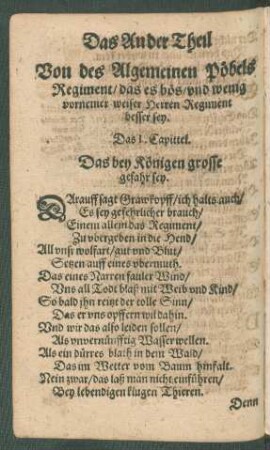 Das Ander Theil
Von des Algemeinen Pöbels
Regiment/ das es bös/ vnd wenig
vornemer weiser Herren Regiment
besser sey.
Das I. Capittel.
Das bey Königen grosse
gefahr sey.
DArauff sagt Grawkopff/ ich halts auch/
Es sey gefehrlicher brauch/
Einem allein das Regiment/
Zu vbergeben in die Hend/
All vnse wolfart/ gut vnd Blut/
Setzen auff eines vbermuth.
Das eines Narren fauler Wind/
Vns all Todt blaß mit Weib vnd Kind/
So bald jhn reint der tolle Sinn/
Das er vns opffern wil dahin.
Vnd wir das also leiden sollen/
Als vnvernünfftig Wasser wellen.
Als ein dürres blath in dem Wald/
Das im Wetter vom Baum hinfalt.
Nein zwar/ das laß man nicht einführen/
Bey lebendigen klugen Thieren.
Denn